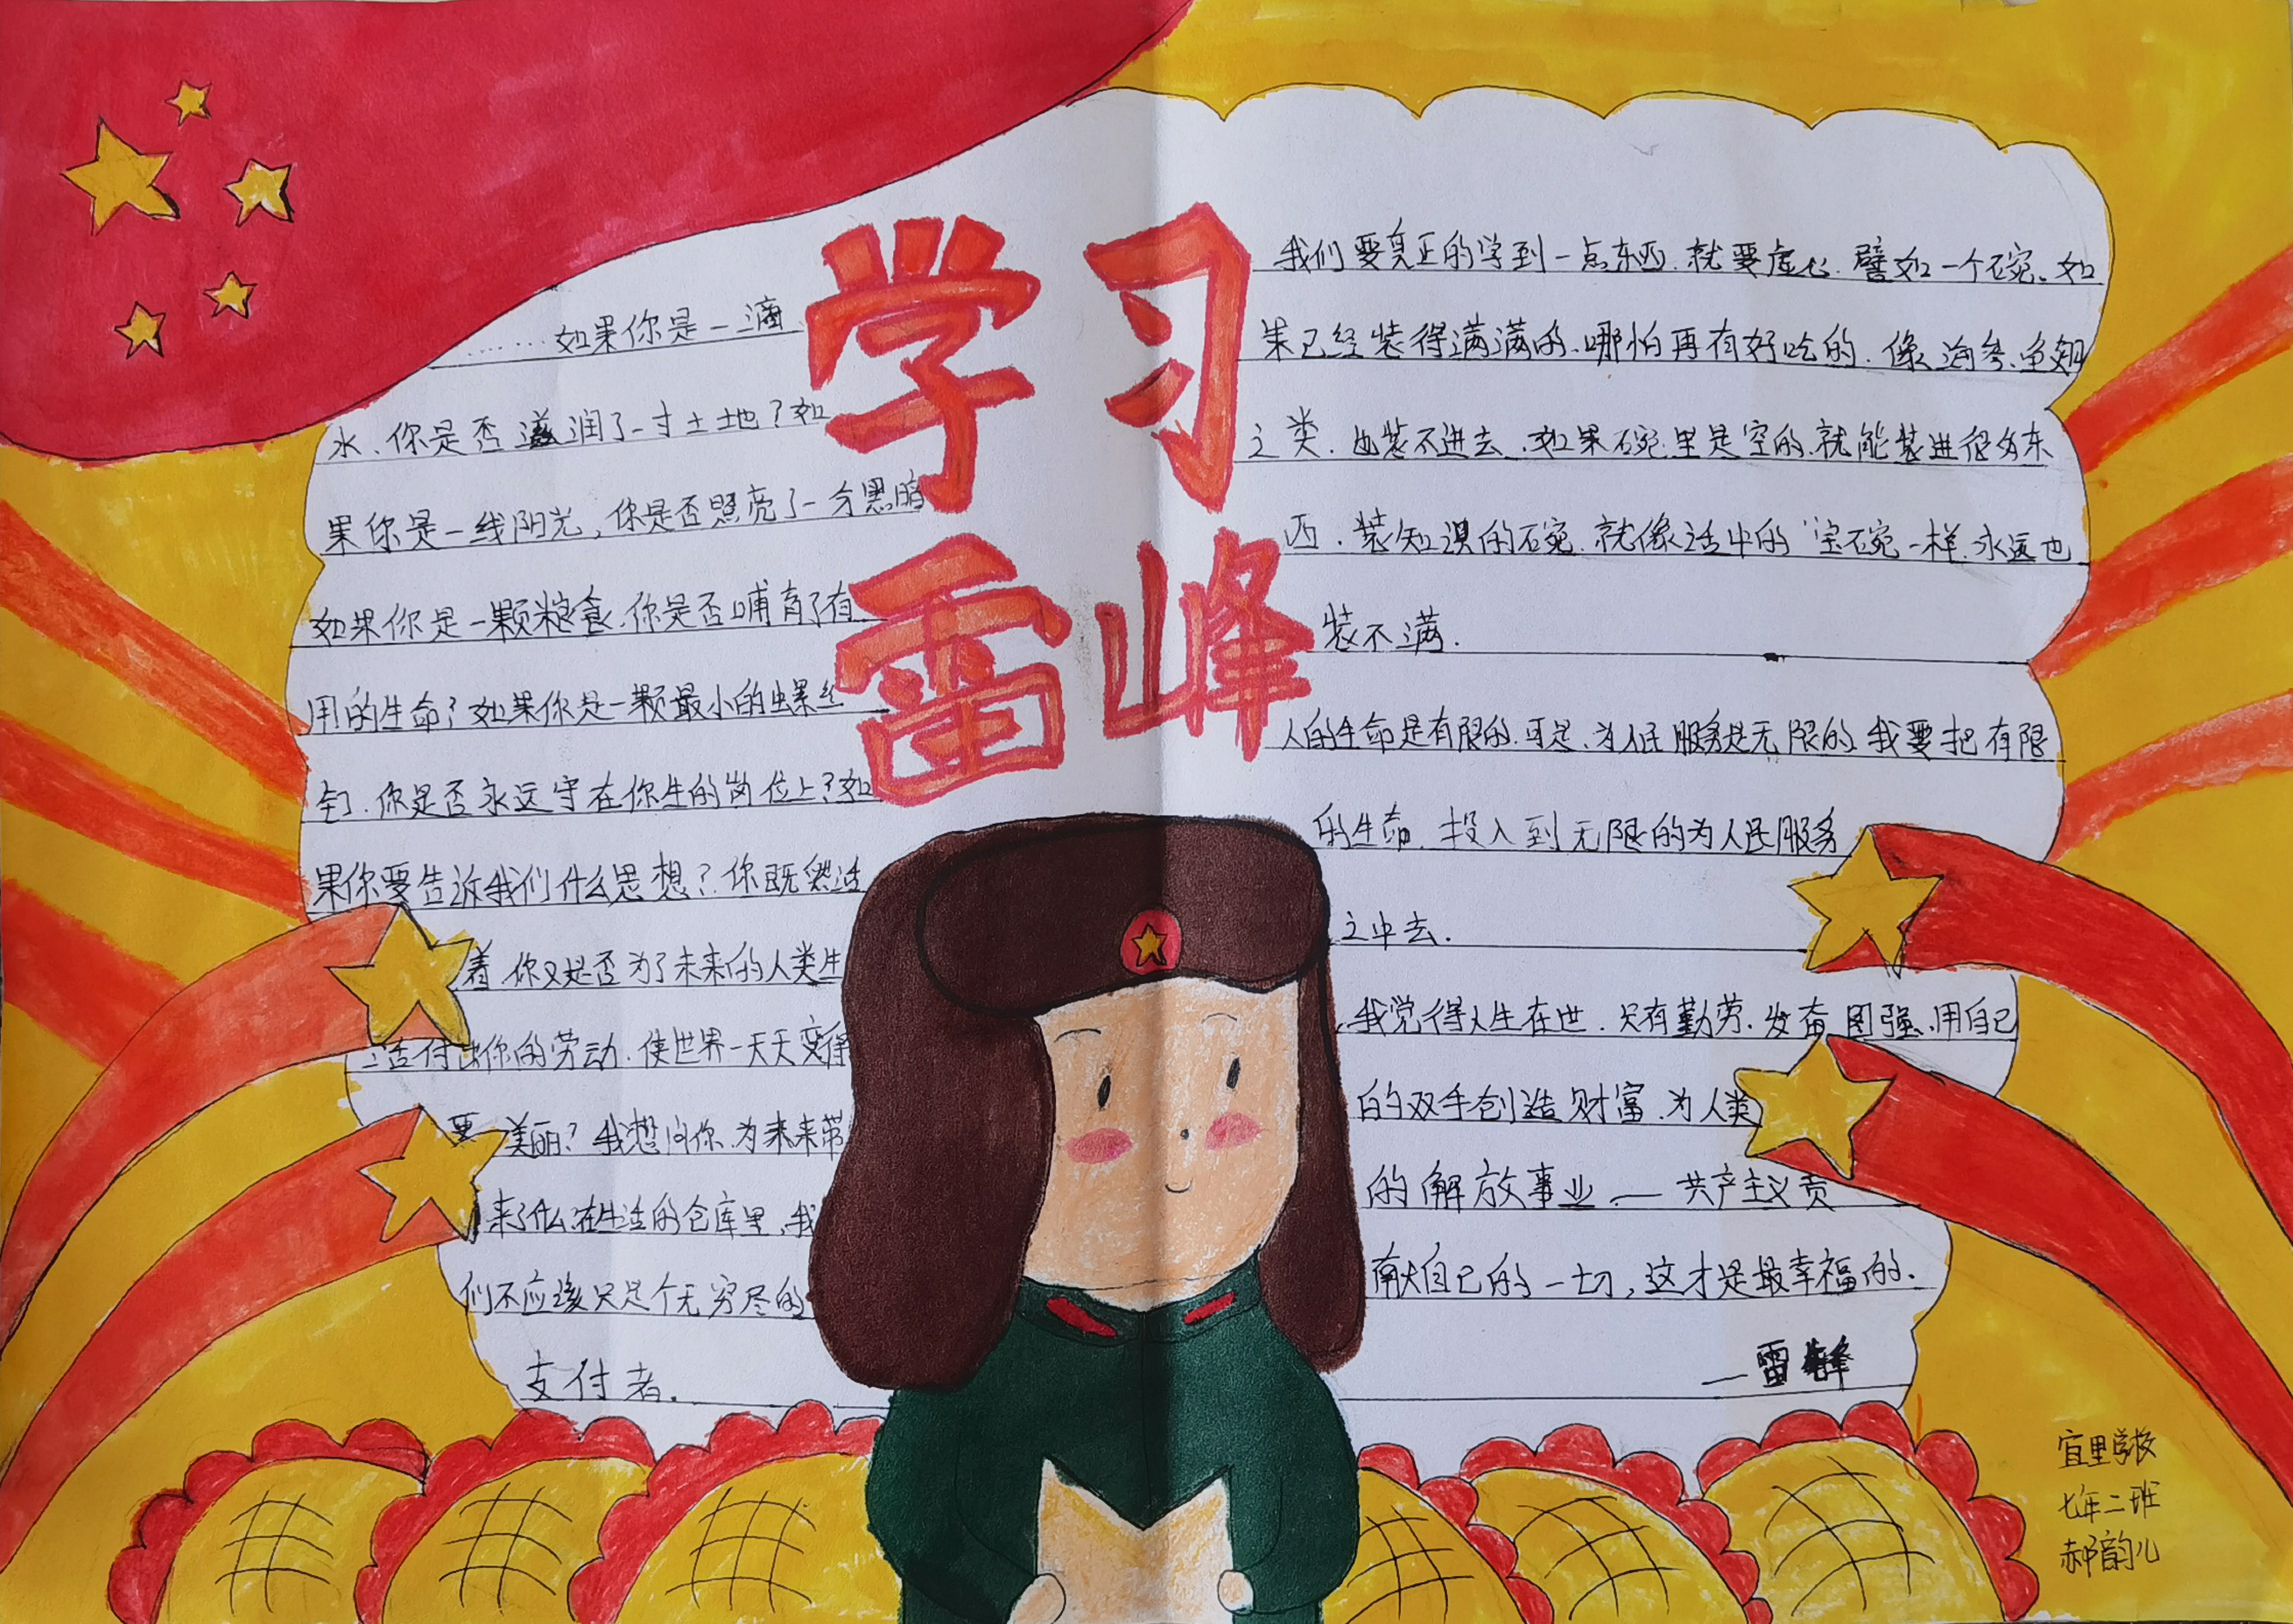 学习
雷峰
……如果你是一滴
水、你是否滋润了一寸土地？如
果你是一线阳光，你是否照亮了一分黑暗
如果你是一颗粮食、你是否哺育了有
用的生命？如果你是一颗最小的螺丝
钉、你是否永远守在你生的岗位上？如
果你要告诉我们什么思想？你既然活
着你又是否为了未来的人类生
活付出你的劳动、使世界一天天变得
更美丽？我想问你、为未来带
来了什么？在生活的仓库里，我
们不应该只是个无穷尽的
支付者.
我们要真正的学到一点东西、就要虚心.譬如一个碗、如
果已经装得满满的、哪怕再有好吃的、像海参、鱼翅
之类.也装不进去、如果碗里是空的、就能装进很多东
西.装知识的碗、就像话中的"宝碗一样、永远也
装不满.
人的生命是有限的、可是、为人民服务是无限的、我要把有限
的生命、投入到无限的为人民服务
之中去.
我觉得人生在世、只有勤劳、发奋图强、用自己
的双手创造财富、为人类
的解放事业——共产主义贡
献自己的一切，这才是最幸福的.
—雷锋
宜里学校
七年二班
郝韵儿